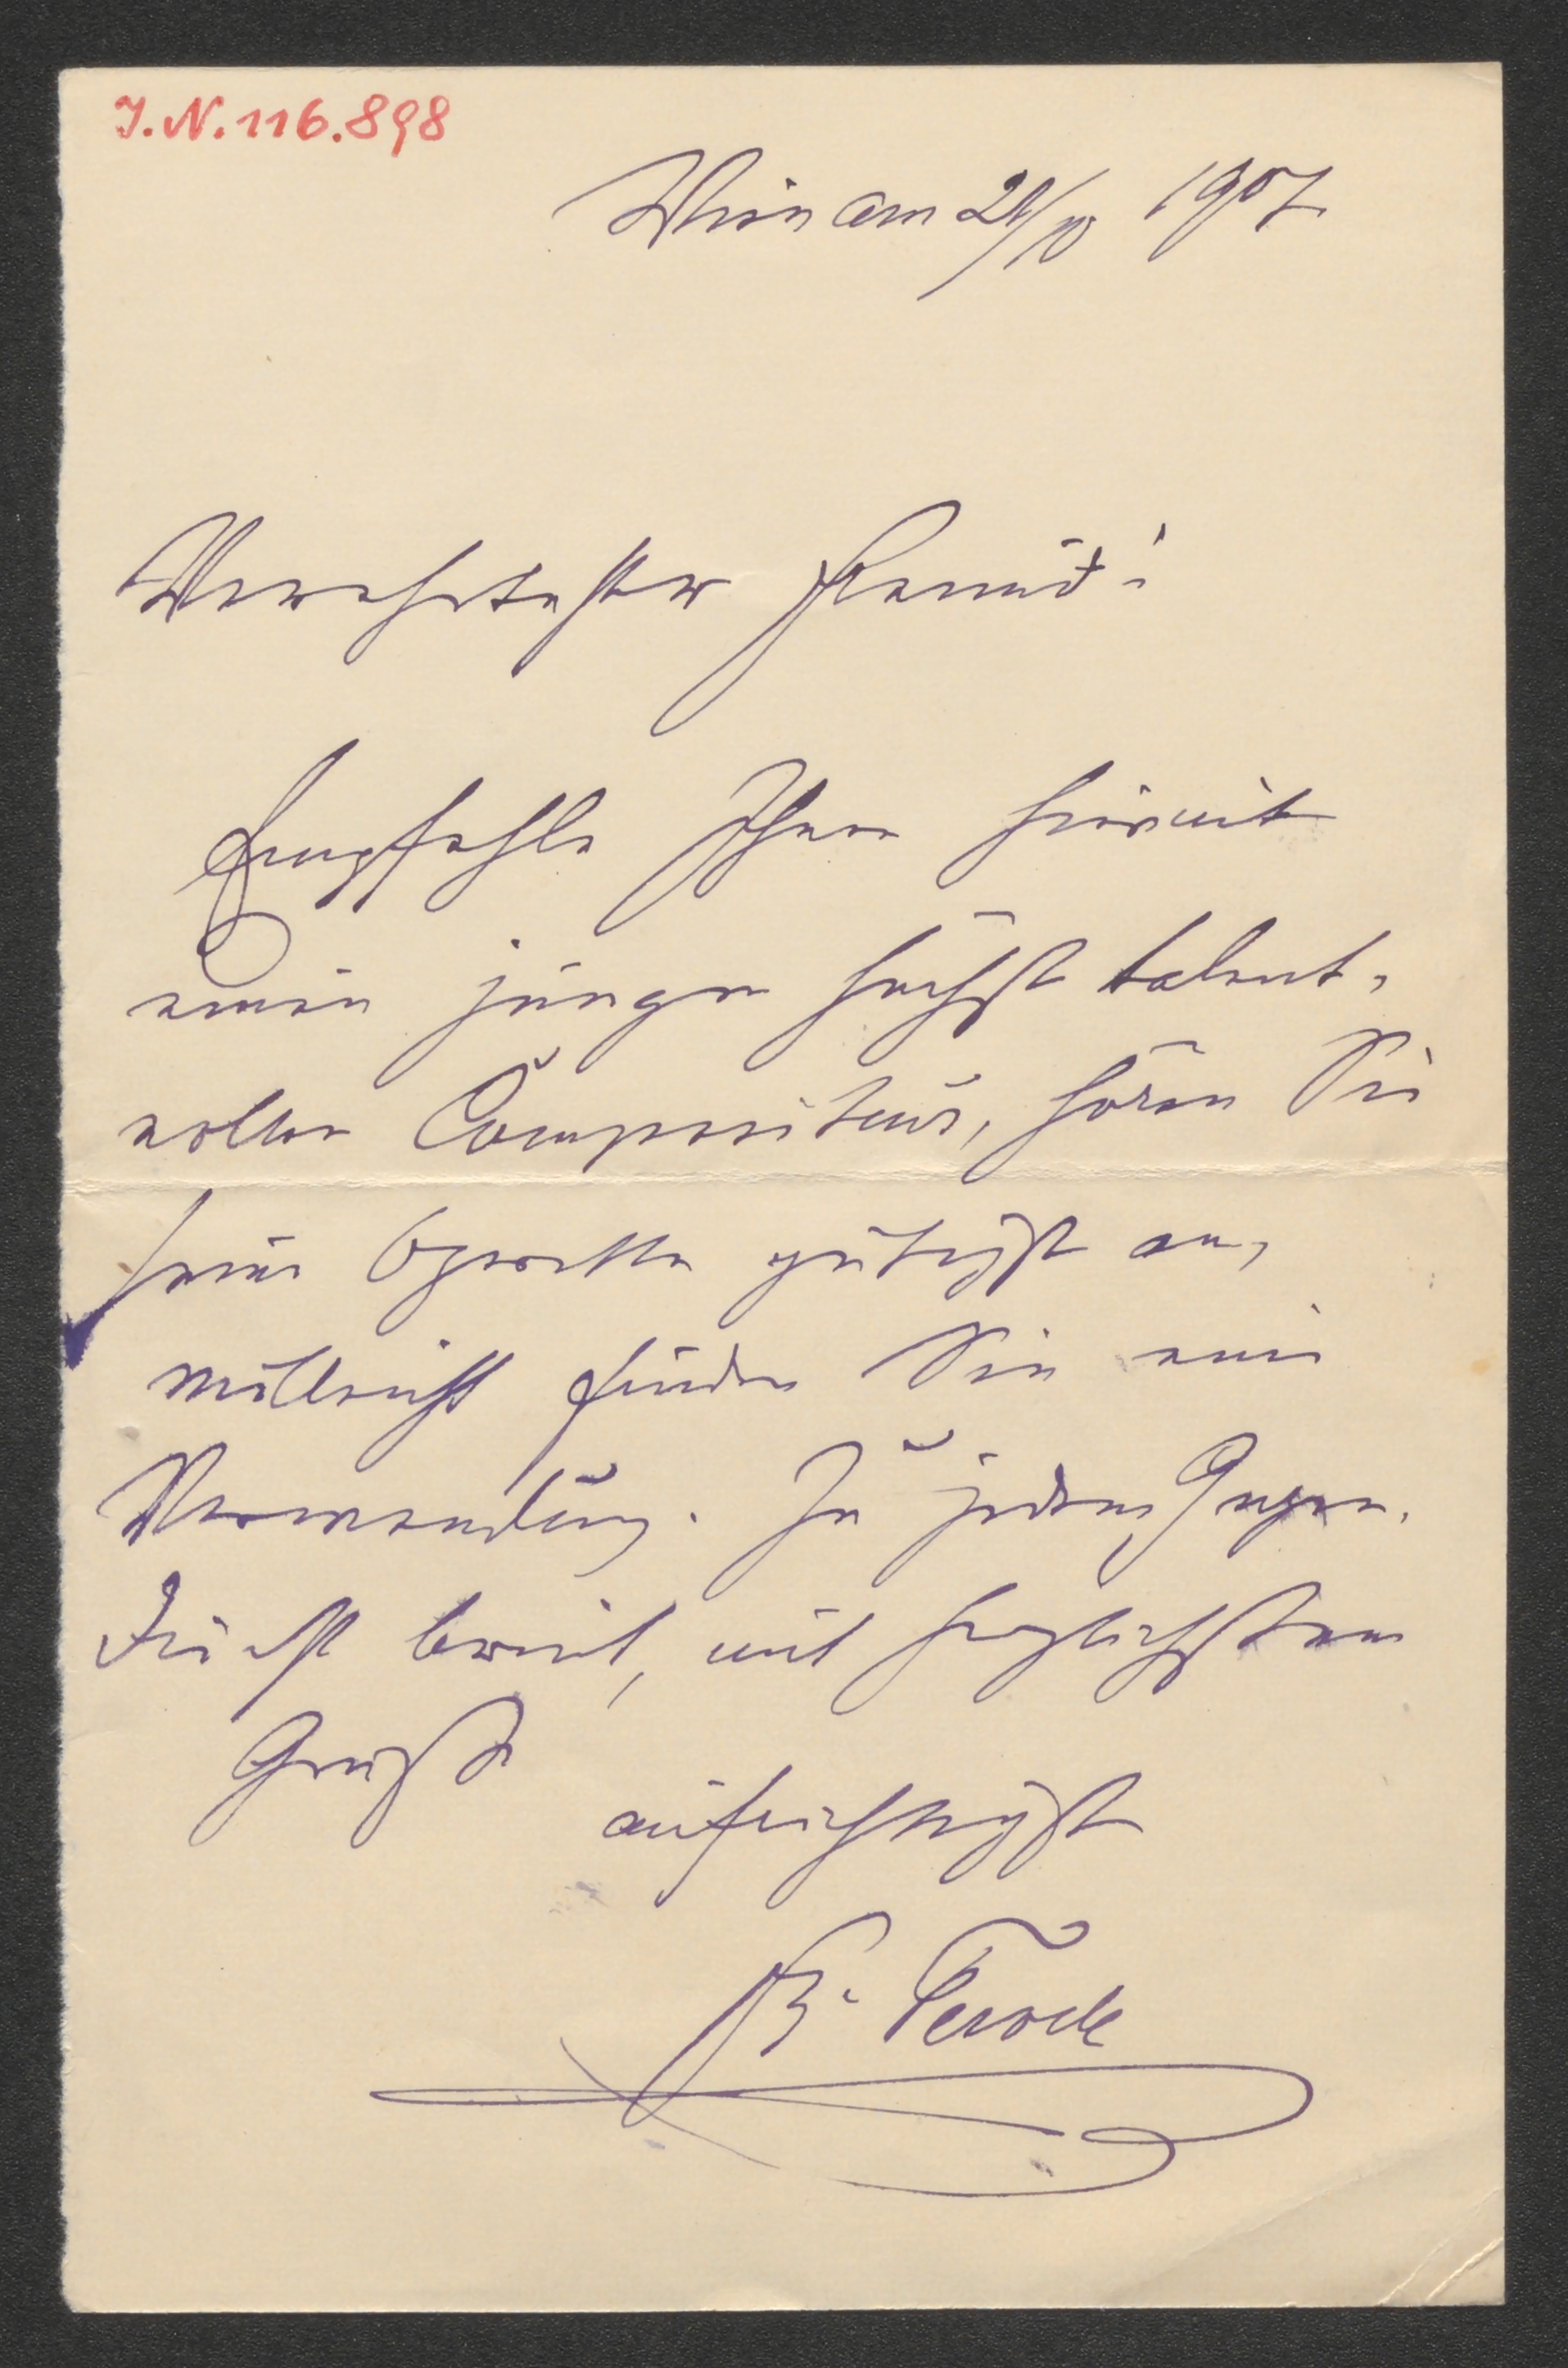 J.N. 116.898
Wien am 21/10 1907
Verehrtester Freund!
Empfehle Ihnen hiermit
einen jungen höchst talent-
vollen Compositeur, hören Sie
seine Operette gütigst an,
vielleicht finden Sie eine
Verwendung. Zu jedem Gegen-
dienst bereit, mit herzlichsten
Gruße
aufrichtigst